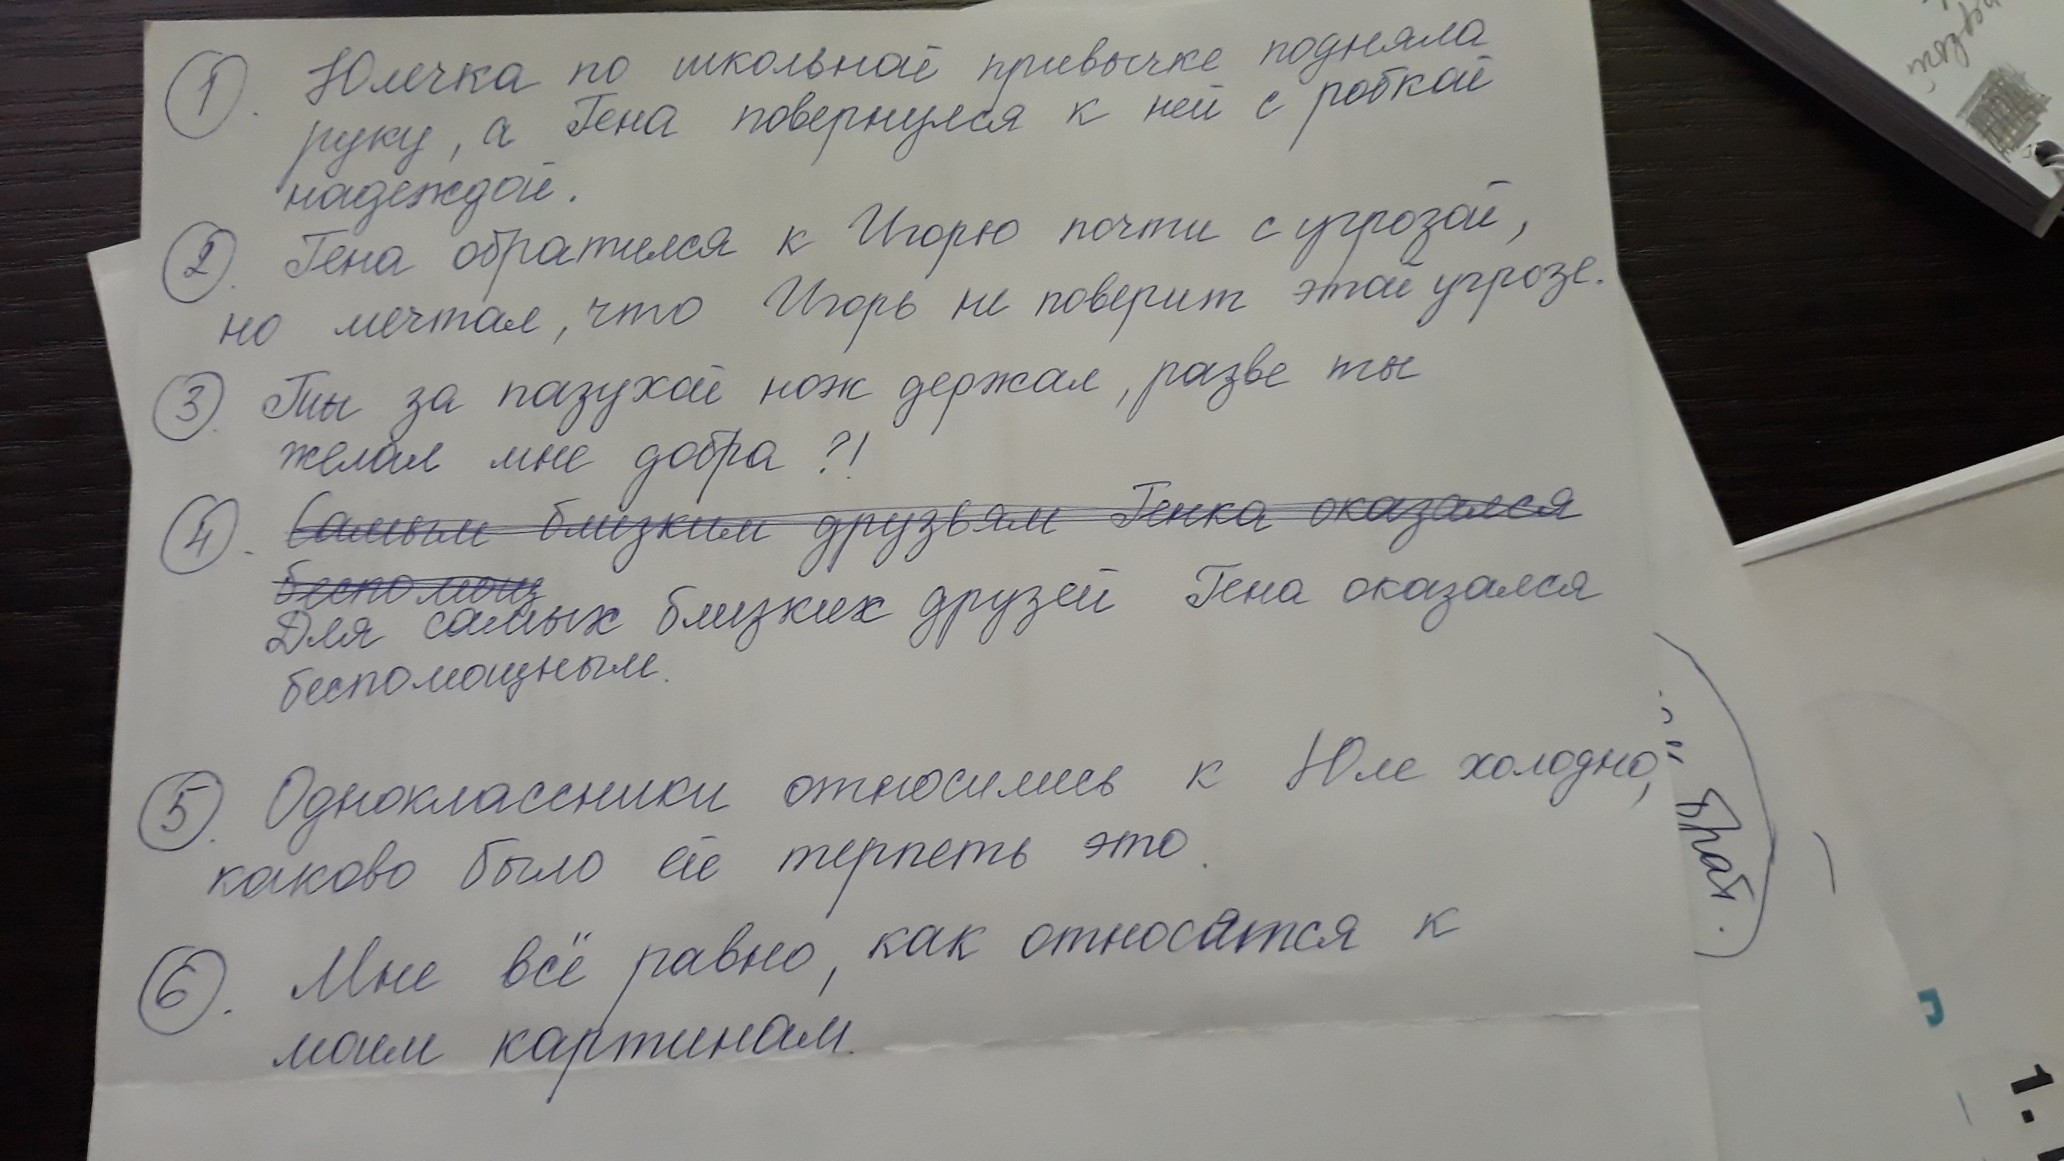 1. Юлечка по школьной привычке подняла
руку, а Гена повернулся к ней с робкой
надеждой.
2. Гена обратился к Игорю почти с угрозой,
но мечтал, что Игорь не поверит этой угрозе.
3. Ты за пазухой нож держал, разве ты
желал мне добра ?!
4. Самым близким друзьям Генка оказался
беспомощ
Для самых близких друзей Гена оказался
беспомощным.
5. Одноклассники относились к Юле холодно,
каково было ей терпеть это.
6. Мне всё равно, как относятся к
моим картинам.
1.